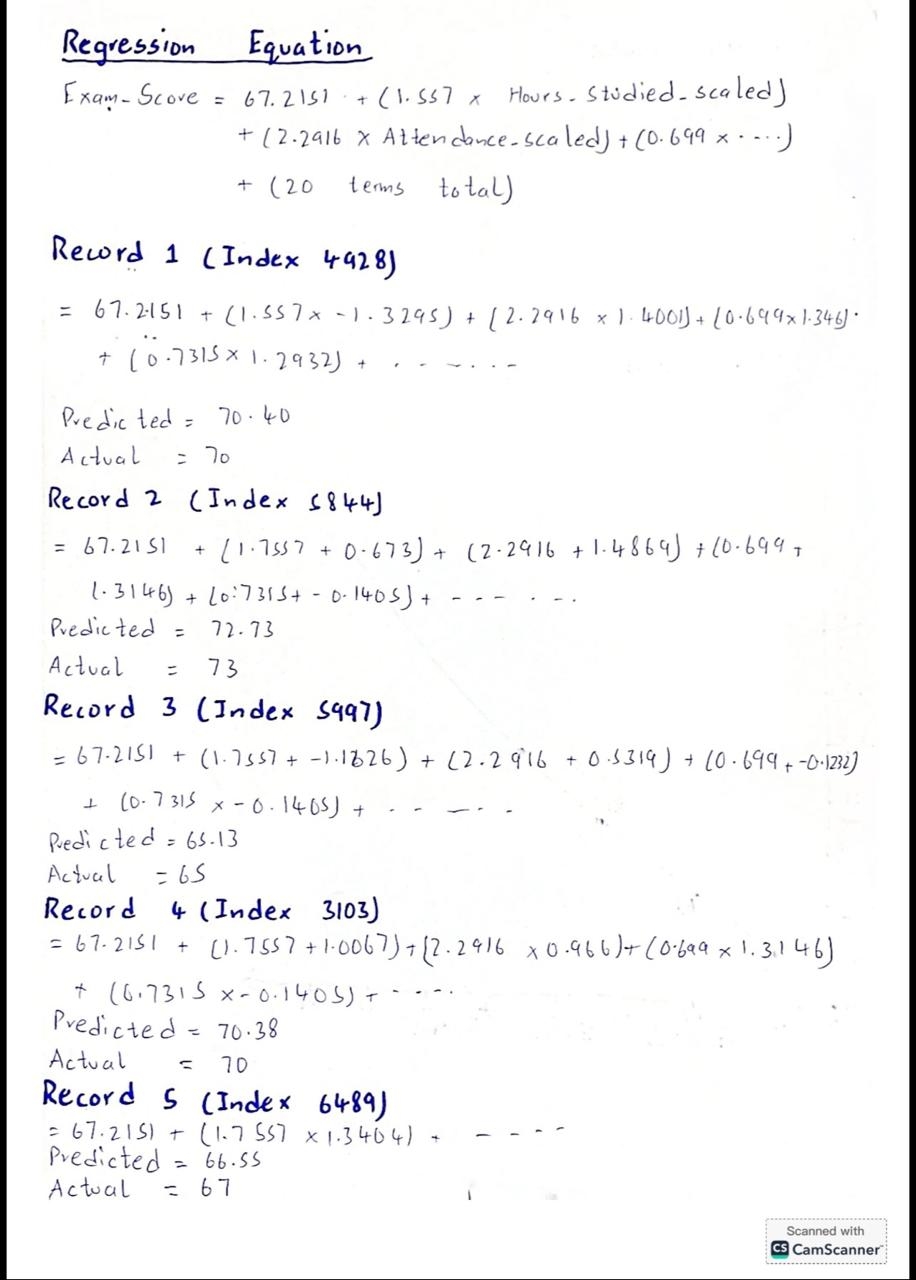 Regression Equation
Exam_Score = 67.2151 + (1.557 x Hours_Studied_scaled)
+ (2.2916 x Attendance_scaled) + (0.699 x ....)
+ (20 terms total)
Record 1 (Index 4928)
= 67.2151 + (1.557 x -1.3295) + (2.2916 x 1.4001) + (0.699x1.346)
+ (0.7315 x 1.2932) + . - - . . . -
Predicted = 70.40
Actual = 70
Record 2 (Index 5844)
= 67.2151 + (1.7557 + 0.673) + (2.2916 + 1.4869) + (0.699 +
1.3146) + (0.7315+ - 0.1405) + - - - . - .
Predicted = 72.73
Actual = 73
Record 3 (Index 5997)
= 67.2151 + (1.7557 + -1.1826) + (2.2916 + 0.5319) + (0.699 + -0.1232)
+ (0.7315 x -0.1405) + . - - . - .
Predicted = 65.13
Actual = 65
Record 4 (Index 3103)
= 67.2151 + (1.7557 +1.0067) + (2.2916 x 0.966) + (0.699 x 1.3146)
+ (0.7315 x -0.1405) + - - - .
Predicted = 70.38
Actual = 70
Record 5 (Index 6489)
= 67.2151 + (1.7557 x 1.3404) + - - - -
Predicted = 66.55
Actual = 67
Scanned with
CS CamScanner